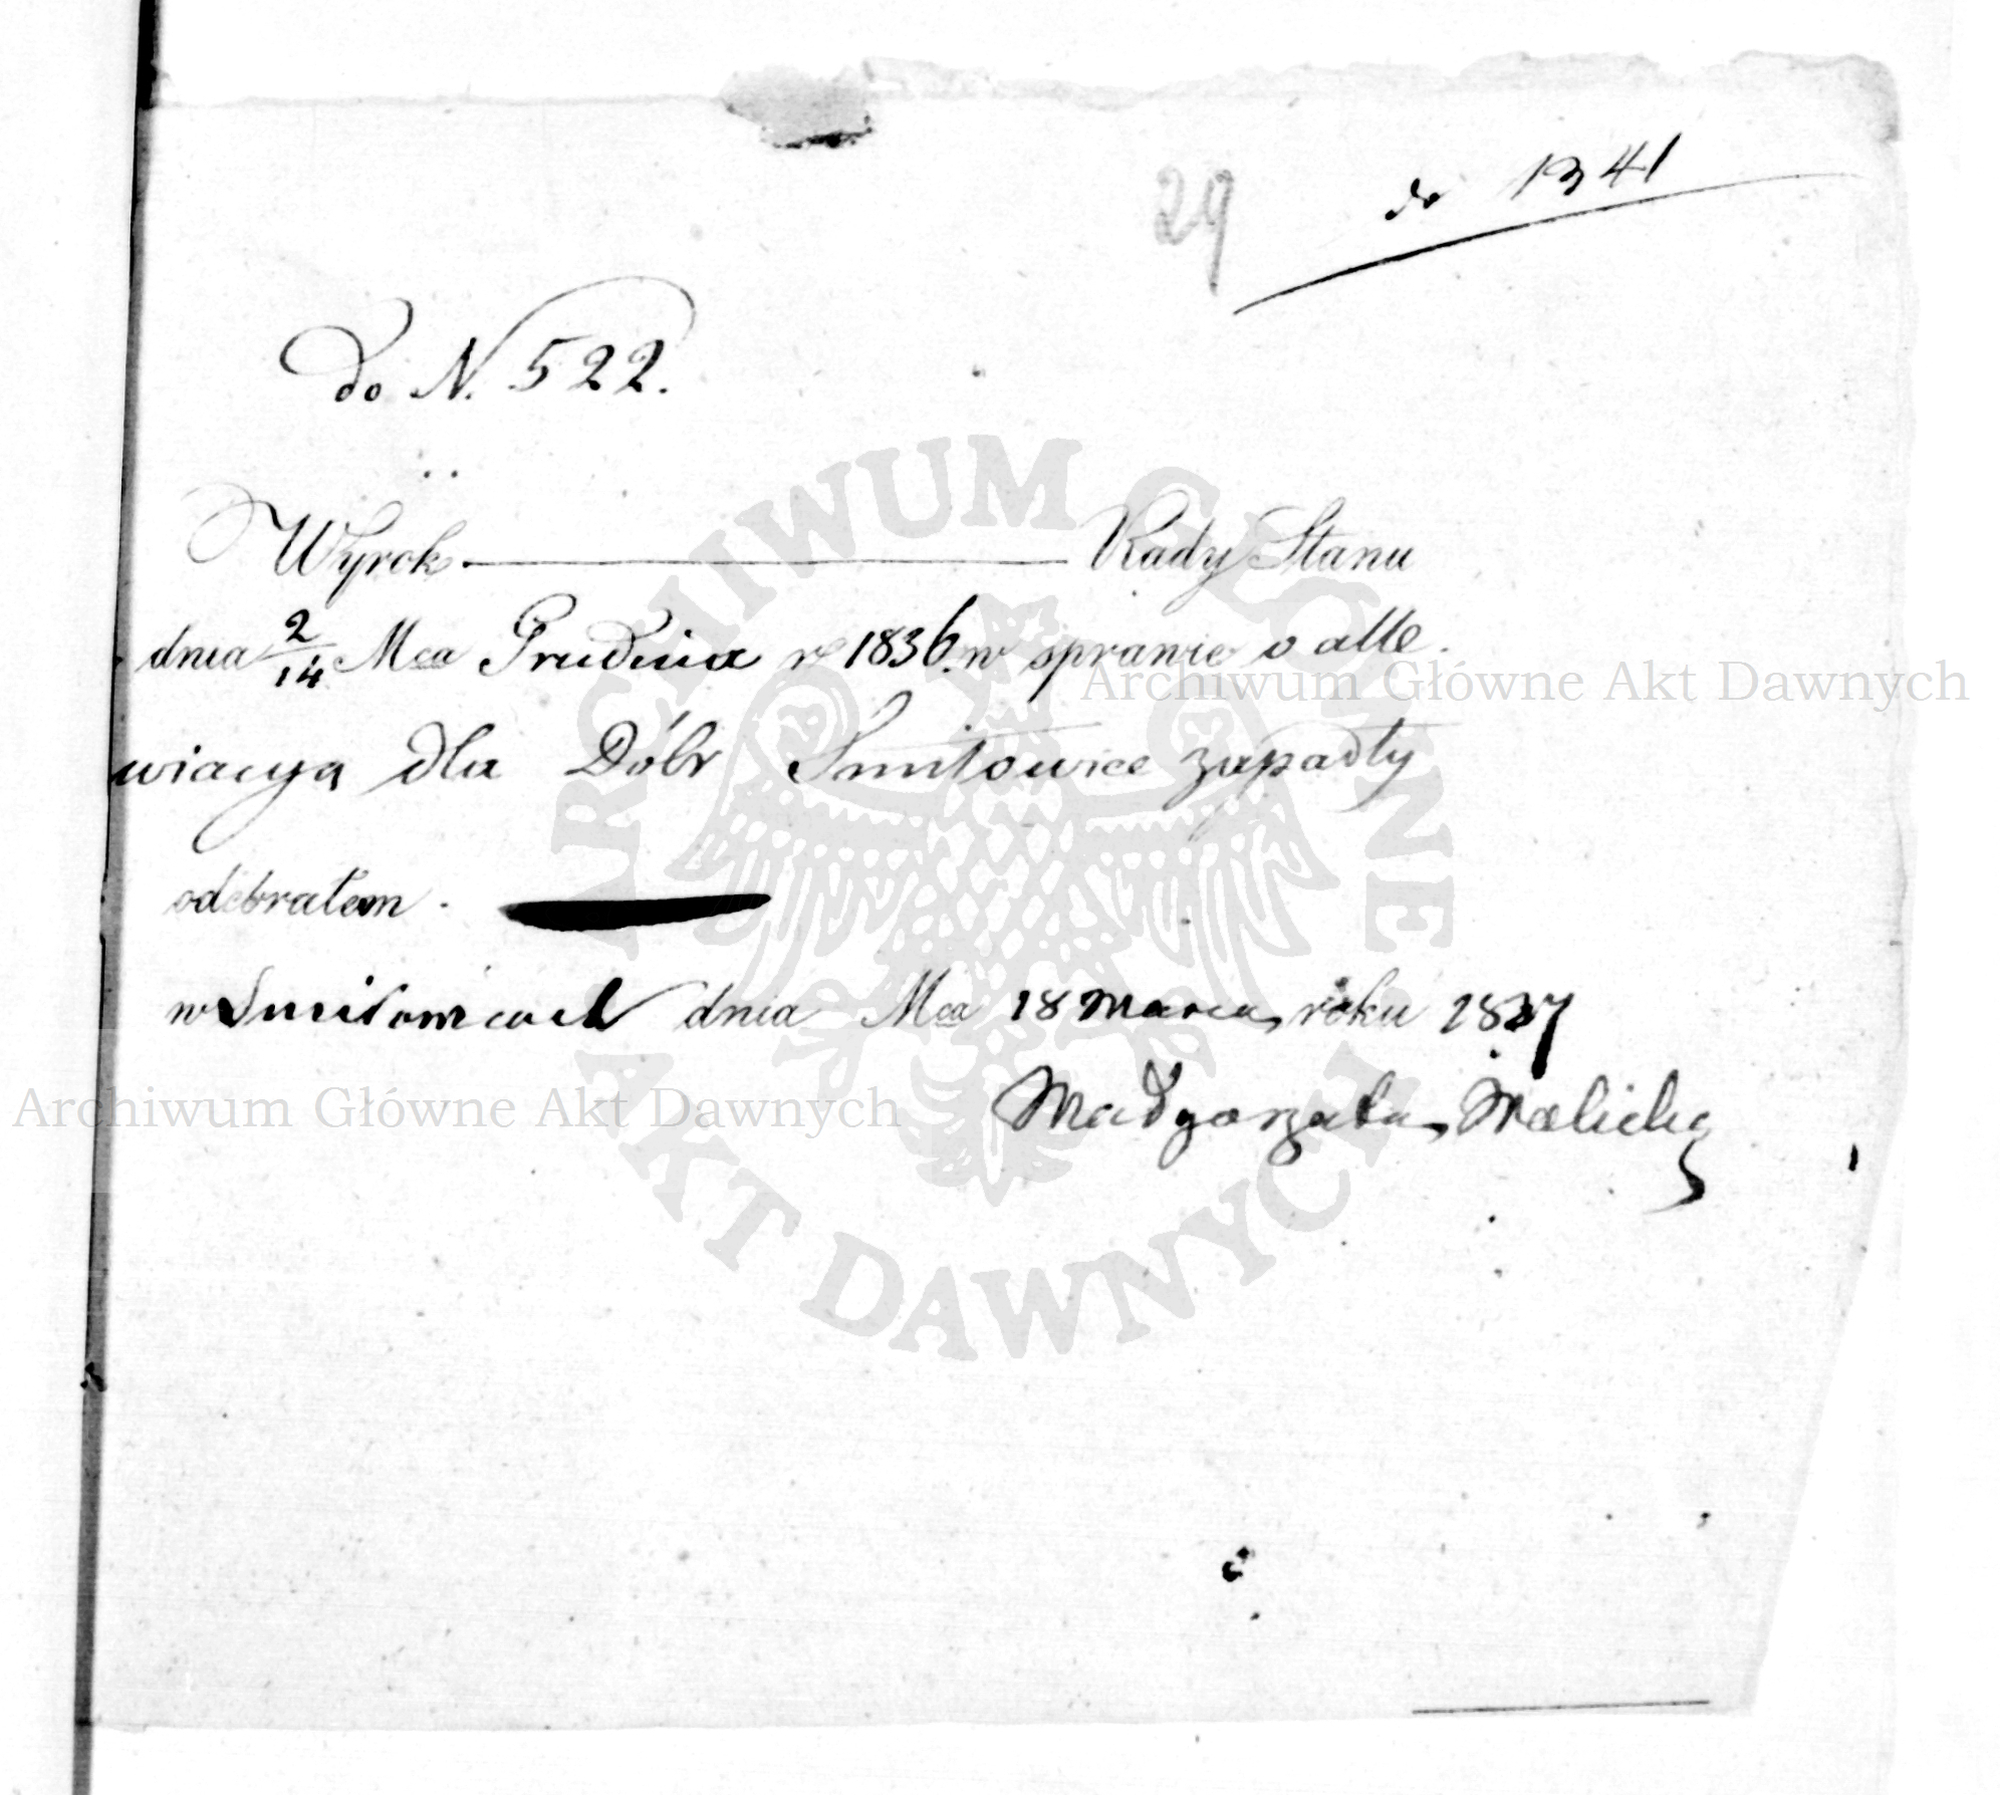 29
do 1341
do N. 522.
Wyrok Rady Stanu
dnia 2/14 Mca Grudnia r 1836. w sprawie o alle.
wiacyą dla Dóbr Smiłowice zapadły
odebrałem.
w Smiłowicach dnia Mca 18 Marca roku 1837
Małgorzata
ARCHIWUM GŁÓWNE AKT DAWNYCH
Archiwum Główne Akt Dawnych
Archiwum Główne Akt Dawnych